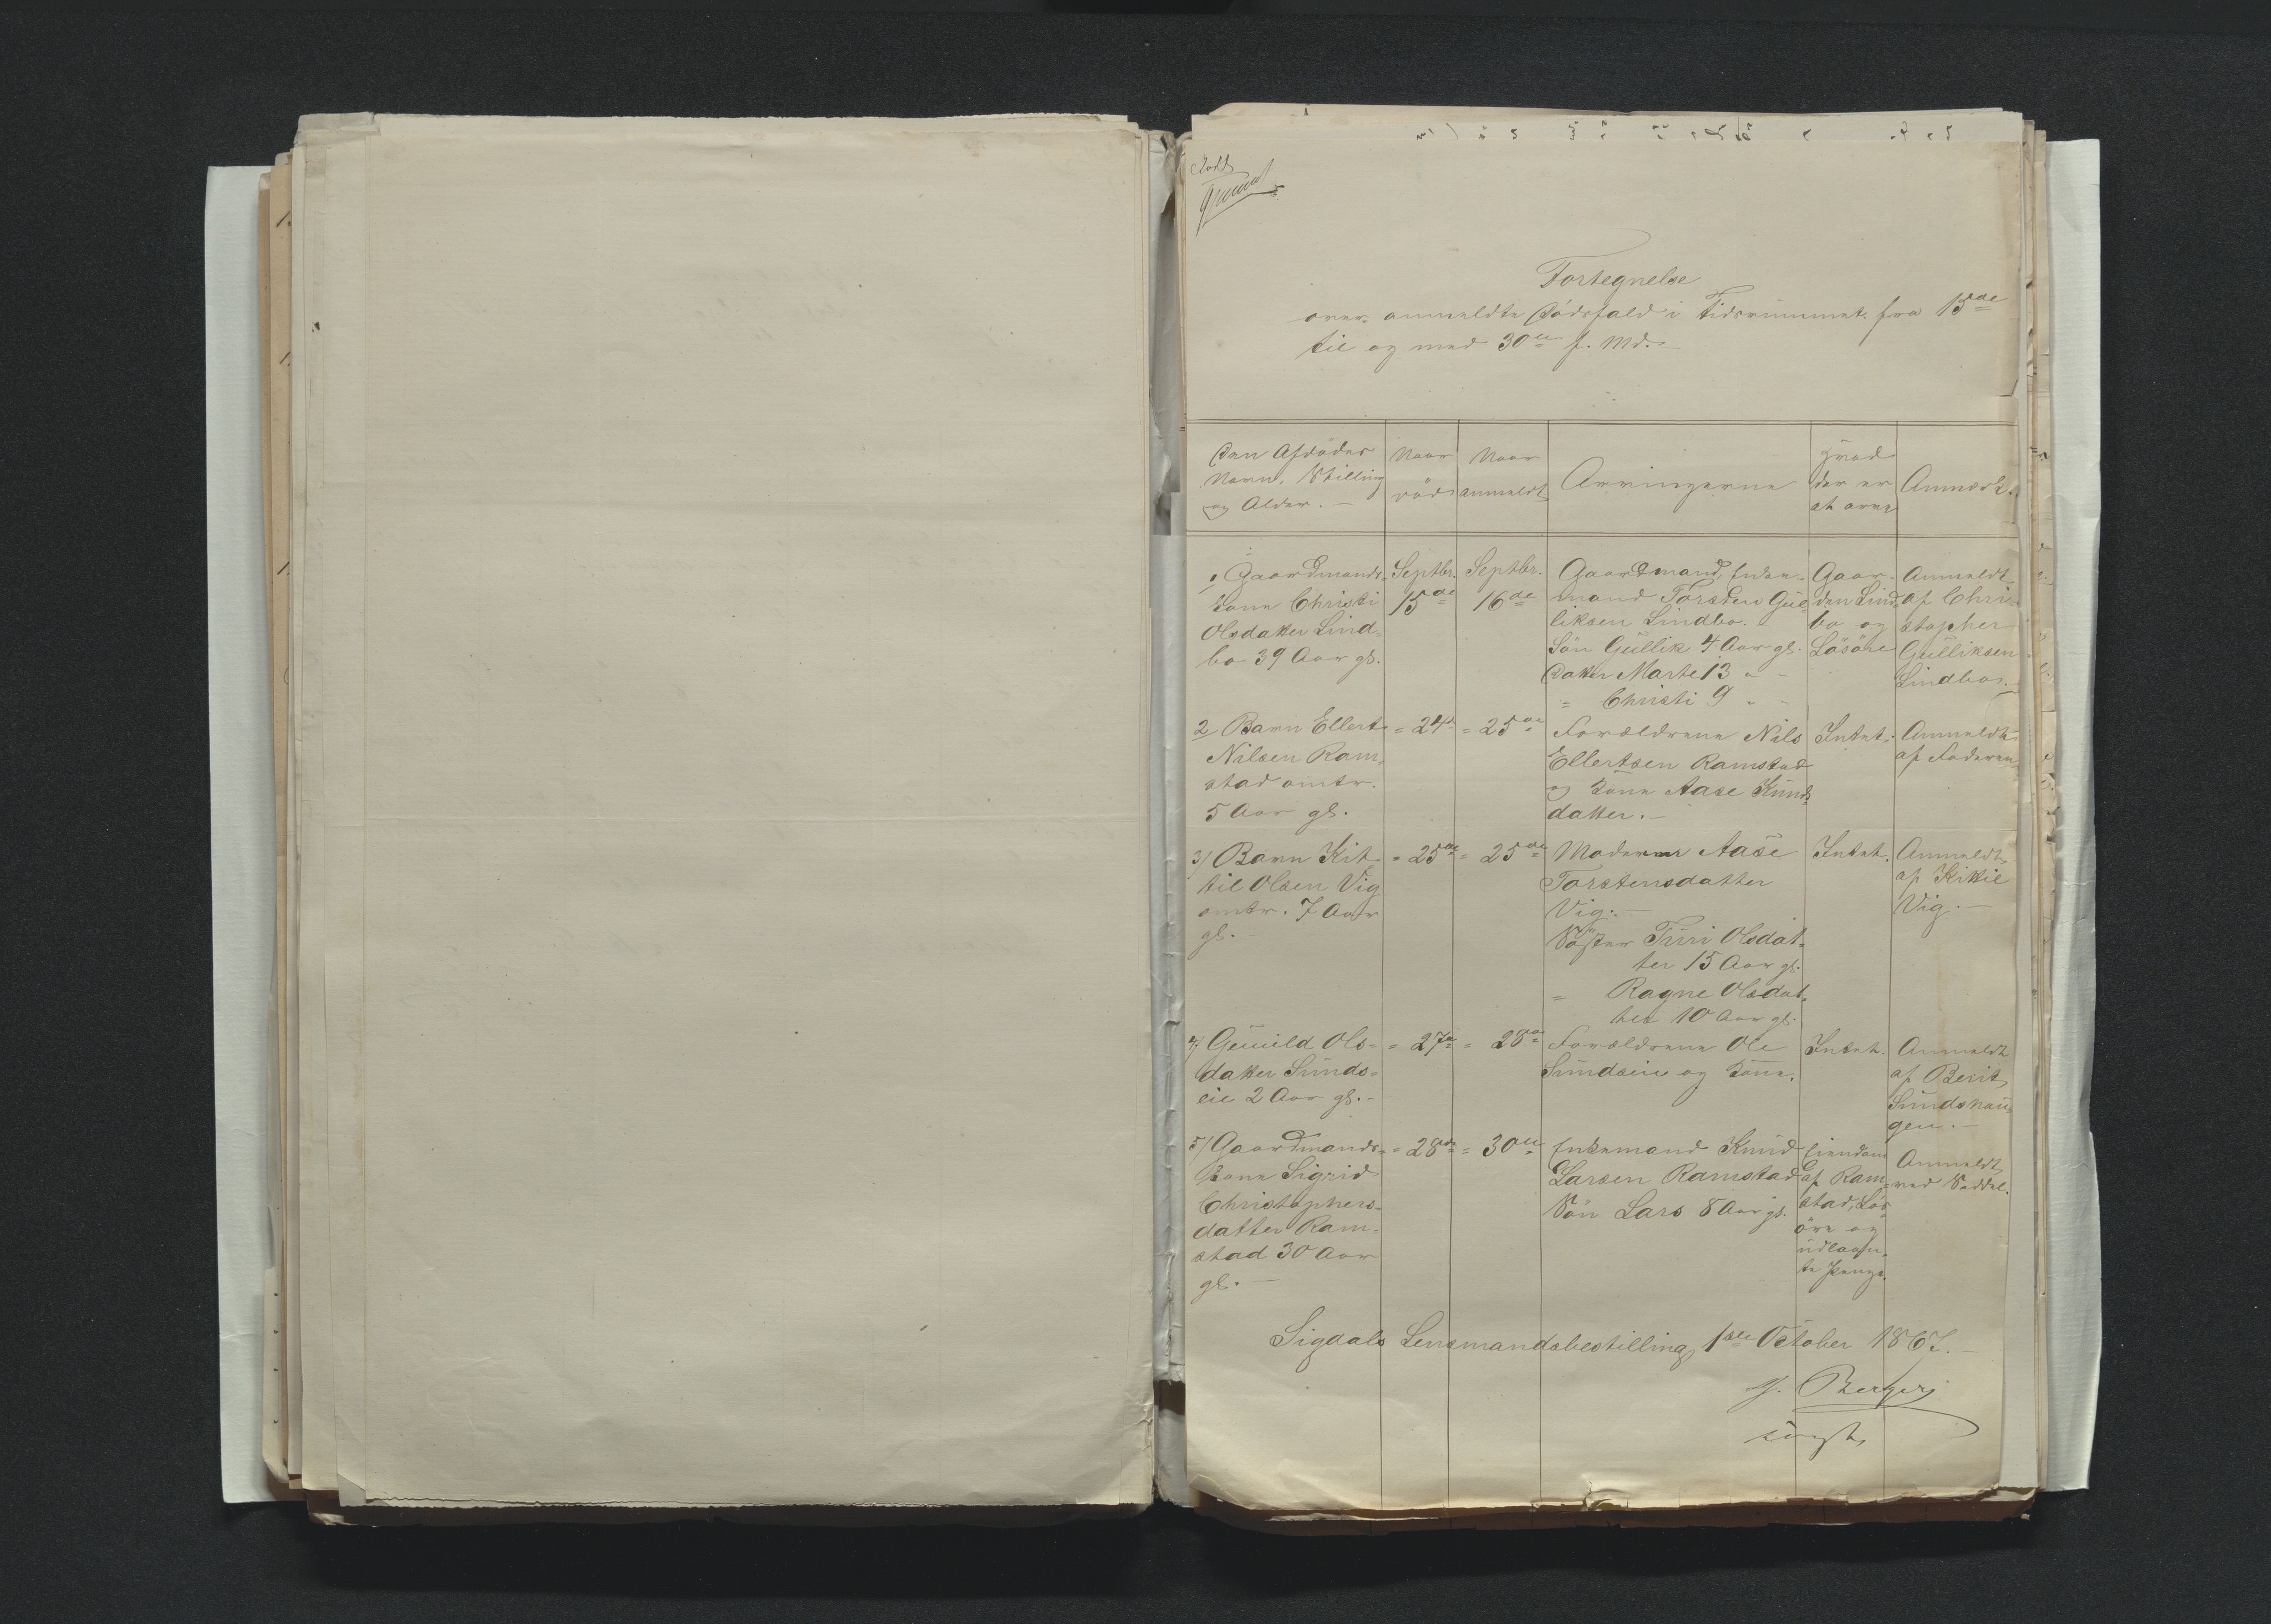 Fortegnelse
over anmeldte Dödsfald i Tidsrummet fra 15de
til og med 30te f. Md.
Den Afdödes
Navn, Stilling
og Alder. —
Naar
död
Naar
anmeldt
Arvingerne
Hvad
der er
at arve
Anmærk.
1 Gaardmands-
kone Christi
Olsdatter Lind-
bo 39 Aar gl.
Septbr.
15de
Septbr.
16de
Gaardmand, Enke-
mand Torsten Gul-
liksen Lindbo.
Sön Gullik 4 Aar gl.
Datter Marte 13 " -
= Christi 9 " -
Gaar-
den Lind-
bo og
Lösöre
Anmeldt
af Chri-
stopher
Gulliksen
Lindbo. —
2 Barn Ellert
Nilsen Ram-
stad omtr.
5 Aar gl.
= 24de
= 25de
Forældrene Nils
Ellertsen Ramstad
og Kone Aase Knuds-
datter. —
Intet.
Anmeldt
af Faderen
3/ Barn Kit-
til Olsen Vig
omtr. 7 Aar
gl. —
= 25de
= 25de
Moderen Aase
Torstensdatter
Vig. —
Söster Turi Olsdat-
ter 15 Aar gl.
= Ragne Olsdat-
ter 10 Aar gl.
Intet.
Anmeldt
af Kittil
Vig. —
4/ Gunild Ols-
datter Sunds-
eie 2 Aar gl. -
= 27de
= 28de
Forældrene Ole
Sundseie og Kone.
Intet.
Anmeldt
af Berit
Sundshau-
gen. —
5/ Gaardmands-
kone Sigrid
Christophers-
datter Ram-
stad 30 Aar
gl. —
= 28de
= 30te
Enkemand Knud
Larsen Ramstad
Sön Lars 8 Aar gl.
Eiendom
af Ram-
stad, Lös-
öre og
udlaan-
te Penge.
Anmeldt
ved Seddel.
Sigdals Lensmandsbestilling 1ste October 1867. —
Berger